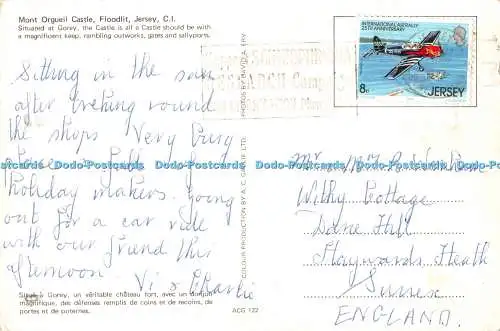 Mont Orgueil Castle, Floodlit, Jersey, C.I.
Situated at Gorey, the Castle is all a Castle should be with
a magnificent keep, rambling outworks, gates and sallyports.
Sitting in the sun
after treking round
the shops Very busy
place full
holiday makers. Going
out for a car ride
with our friend this
afternoon
Vi & Charlie
Situé à Gorey, un véritable château fort, avec un donjon
magnifique, des défenses remplis de coins et de recoins, de
portes et de poternes.
COLOUR PRODUCTION BY A. C. GALLIE LTD. PHOTOS BY DAVID A. FRY
ACG 122
INTERNATIONAL AIR RALLY
25TH ANNIVERSARY
8p
JERSEY
Mr
Withy Cottage
Dane Hill
Haywards Heath
Sussex
ENGLAND.
Dodo-Postcards Dodo-Postcards Dodo-Postcards Dodo-Postcards